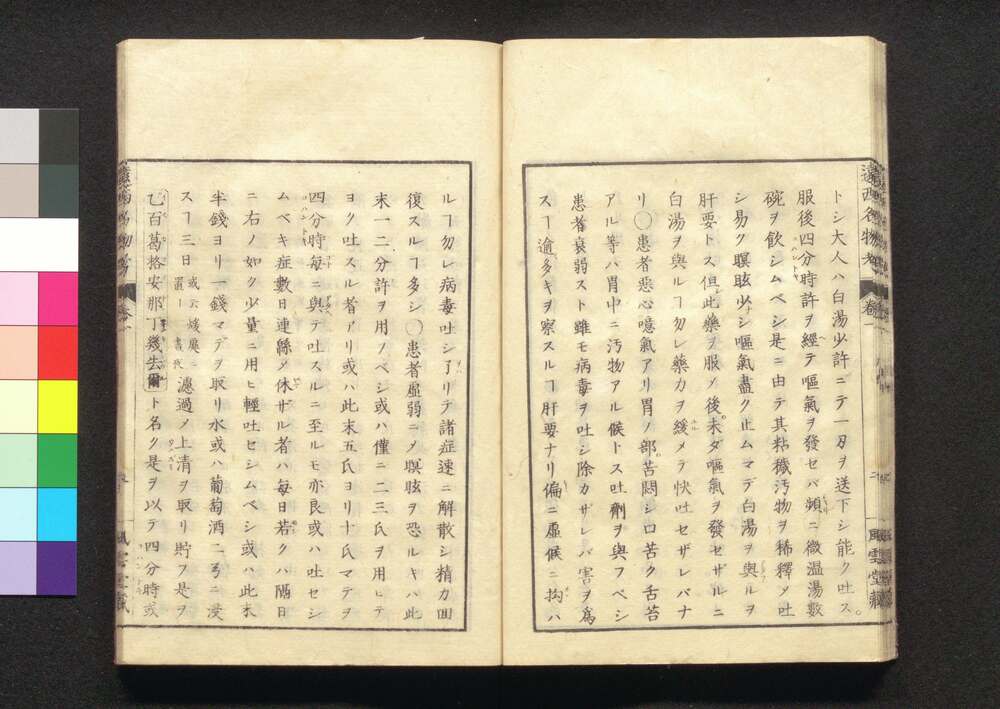 トシ大人ハ白湯少許ニテ一刃ヲ送下シ能ク吐ス。
服後四分時許ヲ經テ嘔氣ヲ發セバ頻ニ微温湯數
碗ヲ飲シムベシ是ニ由テ其粘穢汚物ヲ稀釋メ吐
シ易ク瞑眩少シ嘔氣盡ク止ムマデ白湯ヲ與ルヲ
肝要トス但此藥ヲ服メ後未ダ嘔氣ヲ發セザルニ
白湯ヲ與ルヿ勿レ藥力ヲ緩メテ快吐セザレバナ
リ〇患者惡心噫氣アリ胃ノ部苦悶シ口苦ク舌苔
アル等ハ胃中ニ汚物アル候トス吐劑ヲ與フベシ
患者衰弱スト雖モ病毒ヲ吐シ除カザレバ害ヲ爲
スヿ逾多キヲ察スルヿ肝要ナリ偏ニ虚候ニ拘ハ
遠西名物考 卷一 風雲堂藏
ルヿ勿レ病毒吐シ了リテ諸症速ニ解散シ精力回
復スルヿ多シ〇患者虚弱ニメ瞑眩ヲ恐ルキハ此
末一二分許ヲ用ノベシ或ハ僅ニ二三氏ヲ用ヒテ
ヨク吐スル者アリ或ハ此末五氏ヨリ十氏マデヲ
四分時毎ニ與テ吐スルニ至ルモ亦良或ハ吐セシ
ムベキ症數日連緜メ休ザル者ハ毎日若クハ隔日
ニ右ノ如ク少量ニ用ヒ輕吐セシムベシ或ハ此末
半錢ヨリ一錢マデヲ取リ水或ハ葡萄酒二弓ニ浸
スヿ三日 或云煖處ニ置ヿ一晝夜 濾過メ上清ヲ取リ貯フ是ヲ
乙百葛格安那丁幾去爾ト名ク是ヲ以テ四分時或